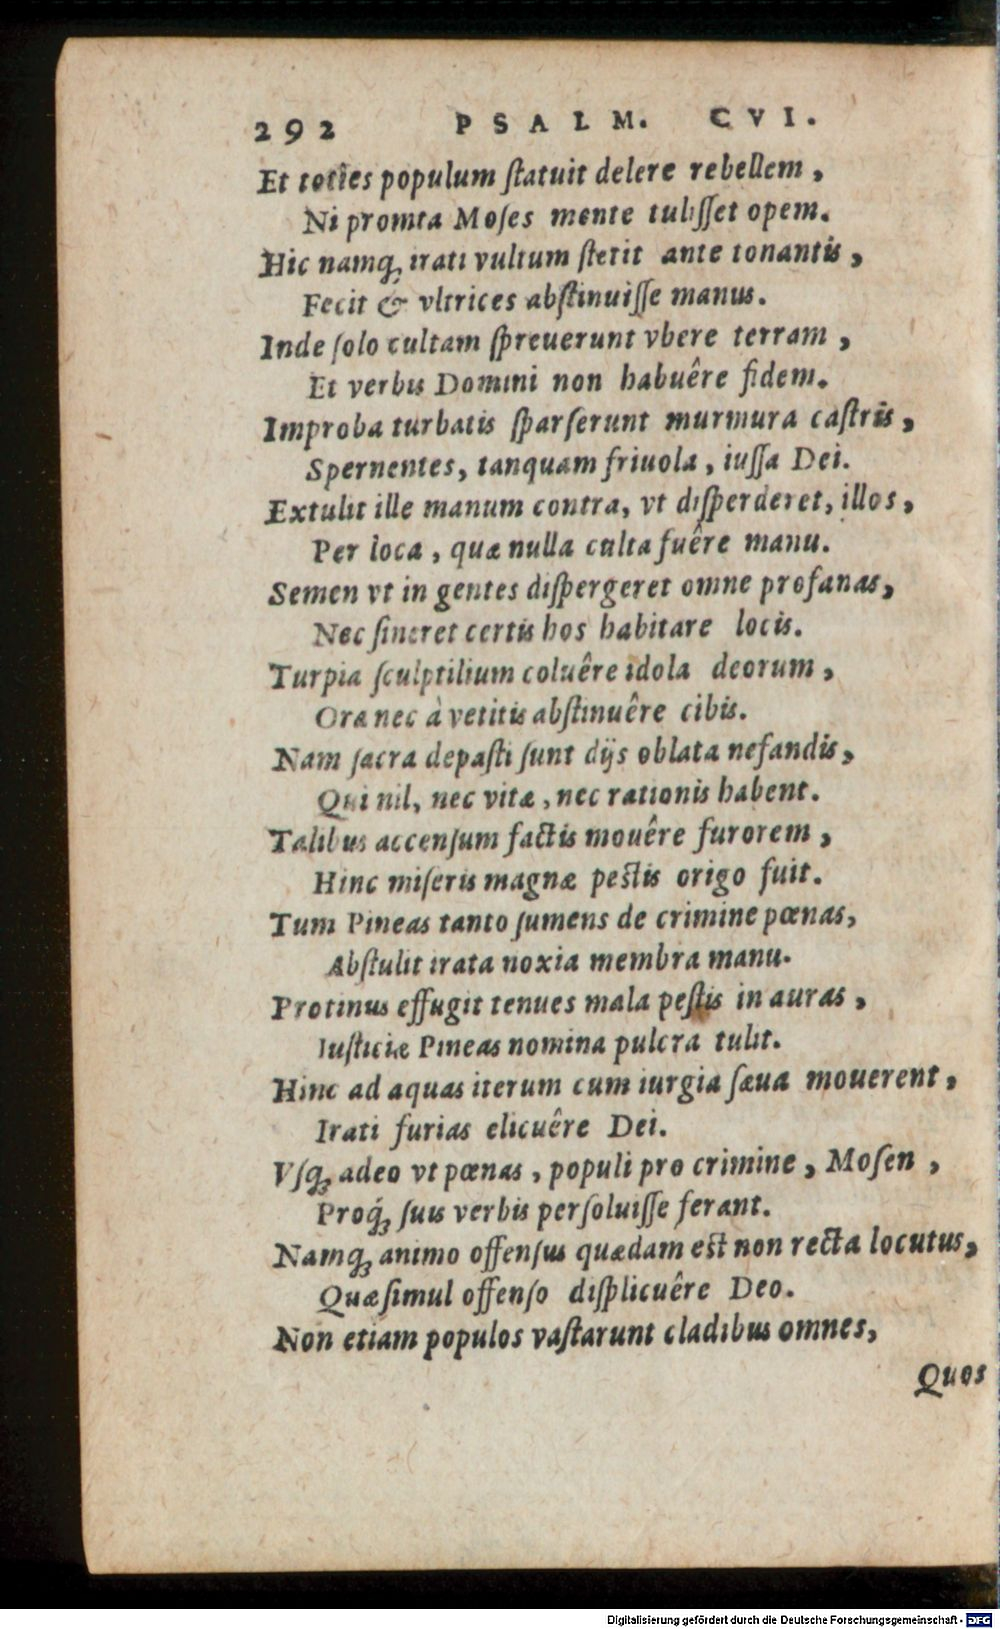 292 PSALM. CVI.
Et toties populum ſtatuit delere rebellem,
Ni promta Moſes mente tuliſſet opem.
Hic namq́; irati vultum ſtetit ante tonantis,
Fecit & vltrices abſtinuiſſe manus.
Inde ſolo cultam ſpreuerunt vbere terram,
Et verbis Domini non habuêre fidem.
Improba turbatis ſparſerunt murmura caſtris,
Spernentes, tanquam friuola, iuſſa Dei.
Extulit ille manum contra, vt diſperderet, illos,
Per loca, quæ nulla culta fuêre manu.
Semen vt in gentes diſpergeret omne profanas,
Nec ſineret certis hos habitare locis.
Turpia ſculptilium coluêre idola deorum,
Ora nec à vetitis abſtinuêre cibis.
Nam ſacra depaſti ſunt dijs oblata nefandis,
Qui nil, nec vitæ, nec rationis habent.
Talibus accenſum factis mouêre furorem,
Hinc miſeris magnæ peſtis origo fuit.
Tum Pineas tanto ſumens de crimine pœnas,
Abſtulit irata noxia membra manu.
Protinus effugit tenues mala peſtis in auras,
Iuſticiæ Pineas nomina pulcra tulit.
Hinc ad aquas iterum cum iurgia ſæua mouerent,
Irati furias elicuêre Dei.
Vſq; adeo vt pœnas, populi pro crimine, Moſen,
Proq́; ſuis verbis perſoluiſſe ferant.
Namq; animo offenſus quædam est non recta locutus,
Quæ ſimul offenſo diſplicuêre Deo.
Non etiam populos vaſtarunt cladibus omnes,
Quos
Digitalisierung gefördert durch die Deutsche Forschungsgemeinschaft - DFG